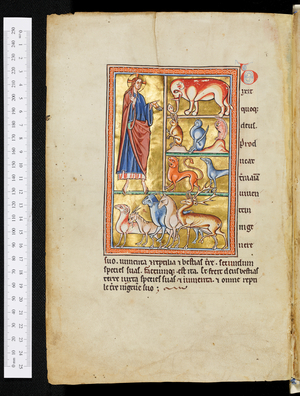 D
ixit
quoq;
deus.
Prod
ucat
t̄raaīā
uiuen
tem
in ge
nere
suo. iumenta ⁊ reptilia ⁊ bestias t̄re. secundum
species suas. factumq; est ita. Et fecit deus bestias
terre iuxta species suas ⁊ iumenta. ⁊ omne repti
le t̄re in genere suo;